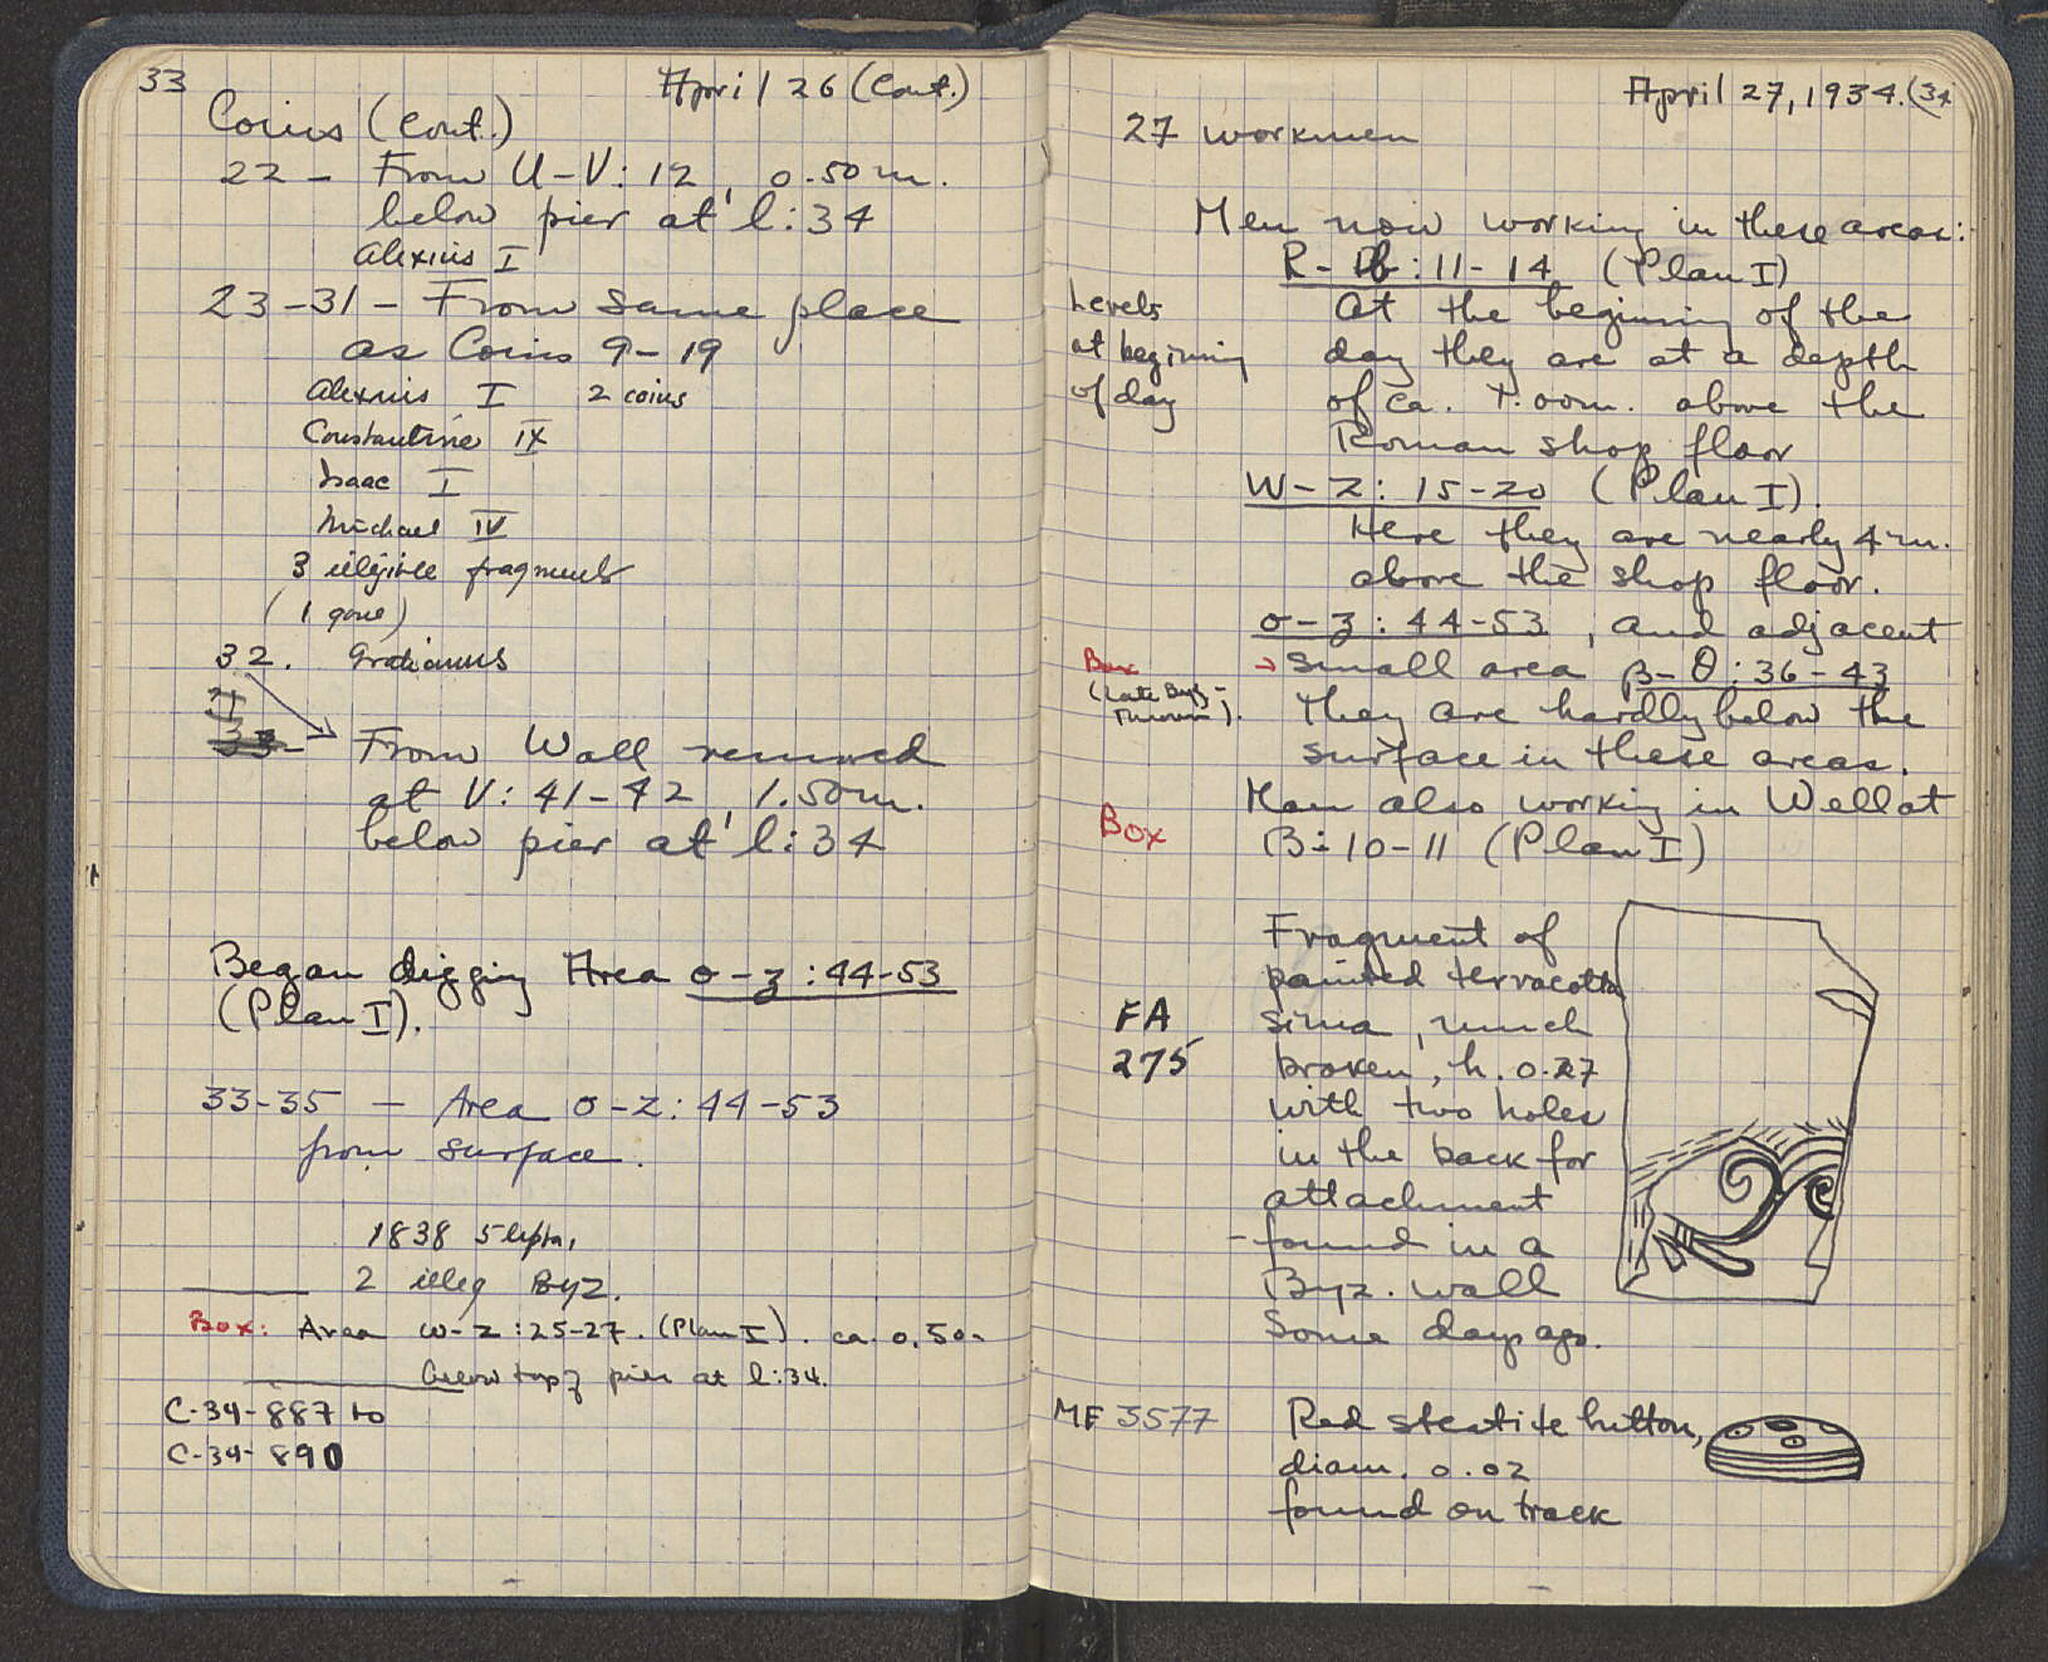 33
April 26 (Cont.)
Coins (Cont.)
22 - From U-V:12, 0.50 m.
below pier at l:34
Alexius I
23-31 - From same place
as Coins 9-19
Alexius I 2 coins
Constantine IX
Isaac I
Michael IV
3 illegible fragments
(1 gone)
32. Gratianus
From Wall removed
at V: 41-42, 1.50 m.
below pier at l:34
Began digging Area o-z:44-53
(Plan I).
33-35 - Area o-z:44-53
from surface.
1838 5 lepta,
2 illeg Byz.
Box: Area w-z:25-27. (Plan I). ca. 0.50-
below top of pier at l:34.
C-34-887 to
C-34-890
April 27, 1934. (34
27 workmen
Men now working in these areas:
R- :11-14 (Plan I)
Levels
at beginning
of day
At the beginning of the
day they are at a depth
of ca. 1.00m. above the
Roman shop floor
W-Z: 15-20 (Plan I).
Here they are nearly 4 m.
above the shop floor.
o-z: 44-53, and adjacent
Box
(Late Byz-
).
small area β-θ:36-43
They are hardly below the
surface in these areas.
Box
Man also working in Well at
B:10-11 (Plan I)
FA
275
Fragment of
painted terracotta
sima, much
broken, h. 0.27
with two holes
in the back for
attachment
- found in a
Byz. wall
some days ago.
MF 3577
Red steatite button,
diam. 0.02
found on track